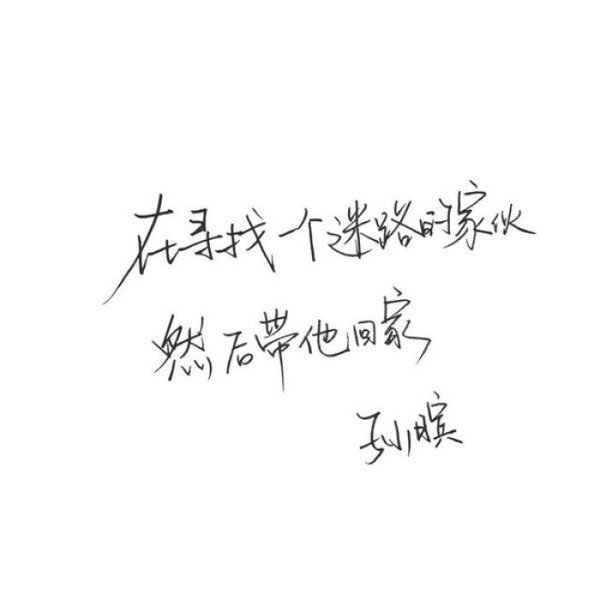 在寻找一个迷路的家伙
然后带他回家
孙膑